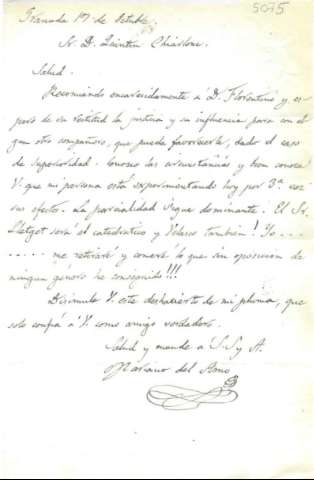 5075
Granada 17 de Octubre.
Sr. D. Quintin Chiarlone.
Salud.
Recomiendo encarecidamente á D. Florentino y, es-
pero de su rectitud la justicia y su influencia para con al
gun otro compañero, que pueda favorecerle, dado el caso
de superioridad. Conozco las circunstancias y bien conoce
V. que mi persona está experimentando hoy por 3ª vez
sus efectos. La parcialidad sigue dominante. El Sr.
Lletget será el catedratico y Velasco tambien! Yo....
..... me retiraré y comeré lo que sin oposicion de
ningun genero he conseguido!!!
Disimule V. este desahogo de mi pluma, que
solo confia á V. como amigo verdadero.
Salud y mande a S. S. y A.
Mariano del Amo